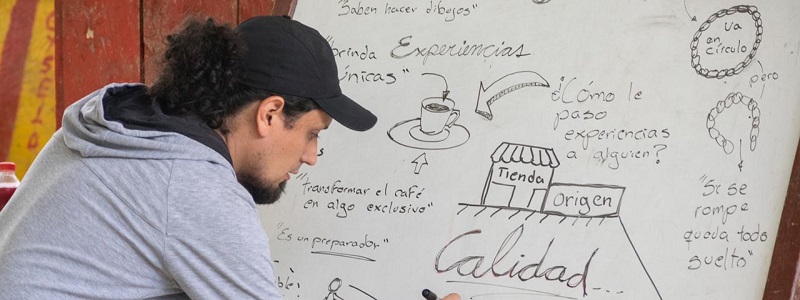 "Saben hacer dibujos"
"brinda Experiencias
únicas"
"transformar el café
en algo exclusivo"
"Es un preparador"
¿Cómo le
paso
experiencias
a alguien?
Tienda
Origen
Calidad...
va
en
círculo
pero
"Si se
rompe
queda todo
suelto"